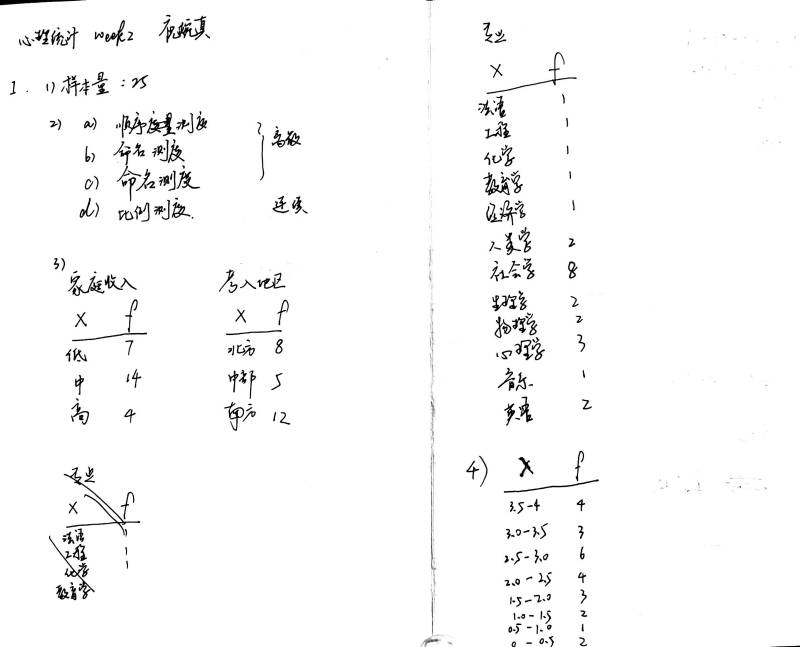 心理统计 week2
I. 1) 样本量：25
2) a) 顺序度量测度
b) 命名测度
c) 命名测度
离散
d) 比例测度. 连续
3)
家庭收入
X f
低 7
中 14
高 4
考入地区
X f
北方 8
中部 5
南方 12
专业
X f
法语 1
工程 1
化学 1
教育学
专业
X f
法语 1
工程 1
化学 1
教育学 1
经济学 1
人类学 2
社会学 8
生理学 2
物理学 2
心理学 3
音乐 1
英语 2
4) X f
3.5-4 4
3.0-3.5 3
2.5-3.0 6
2.0-2.5 4
1.5-2.0 3
1.0-1.5 2
0.5-1.0 1
0-0.5 2